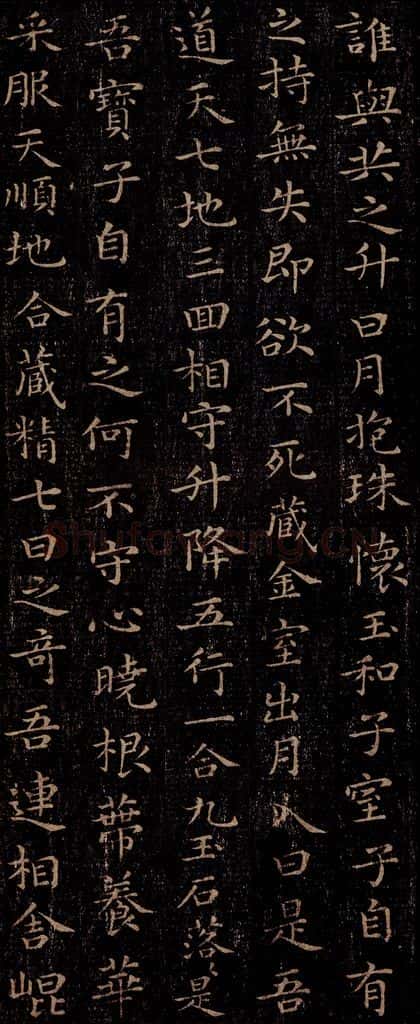 誰與共之升日月抱珠懷王和子室子自有
之持無失即欲不死藏金室出月入日是吾
道天七地三囬相守升降五行一合九玉石落〻是
吾寶子自有之何不守心曉根蔕養華
采服天順地合藏精七日之奇吾連相舍崐
Shufawang.CN